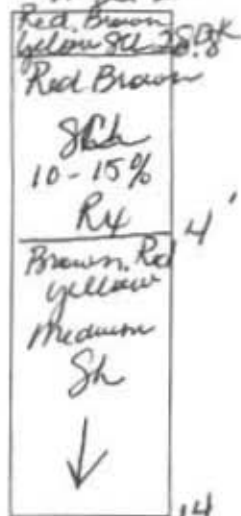 Red. Brown
yellow
Red Brown
10-15%
Rx
4'
Brown. Red
yellow
medium
Sh
14